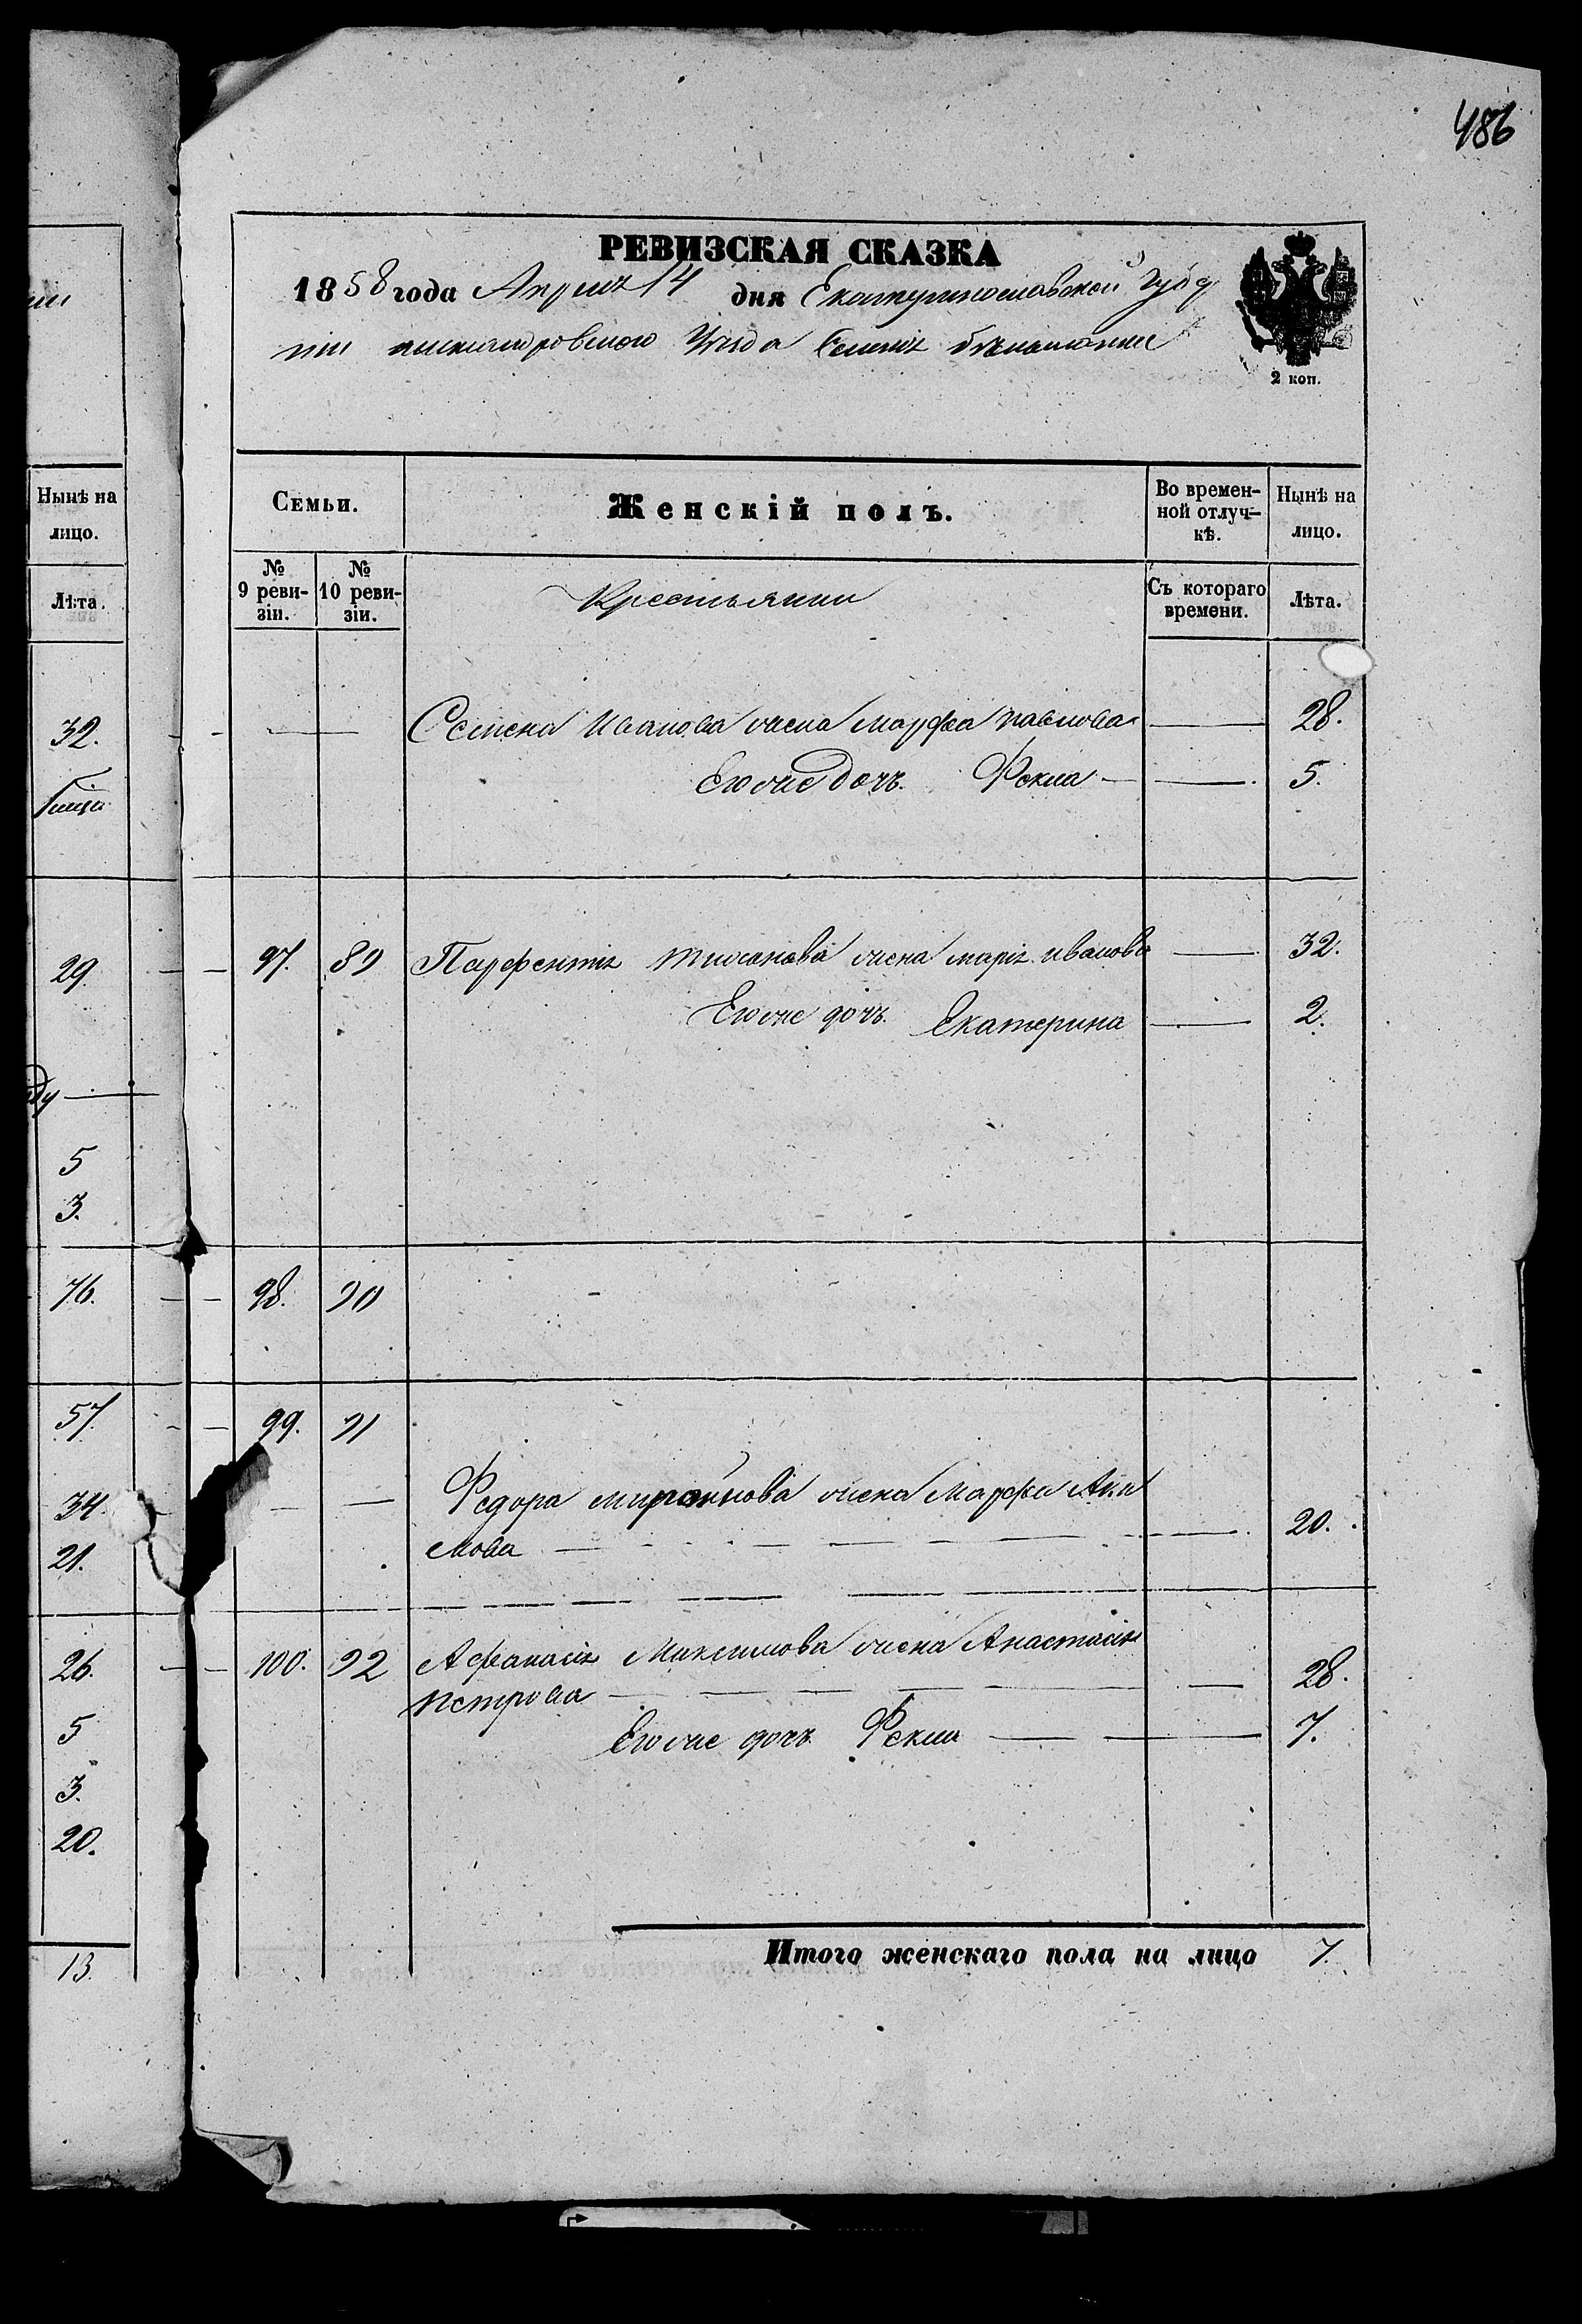 486
РЕВИЗСКАЯ СКАЗКА
1858 года Апреля 14 дня Екатеринославской Губер
нии Александровского Уезда Селения
2 коп.
Нынѣ на лицо.
Лѣта.
32.
29.
5
3.
76.
57.
34.
21.
26.
5
3.
20.
13.
Семьи. Женскій полъ. Во времен- Нынѣ на
ной отлуч- лицо.
кѣ.
№ 9 реви- зіи. № 10 реви- зіи. Крестьянии Съ котораго времени. Лѣта.
Семена Иванова жена Марфа Павлова 28.
Его же дочь Фекла 5.
97. 89 Парфентія жена Марія Иванова 32.
Его же дочь Екатерина 2.
98. 90
99. 91
Федора жена Марфа Аки
мова 20.
100. 92 Афанасія Максимова жена Анастасія
Петрова 28.
Его же дочь Фекла 7.
Итого женскаго пола на лицо 7.